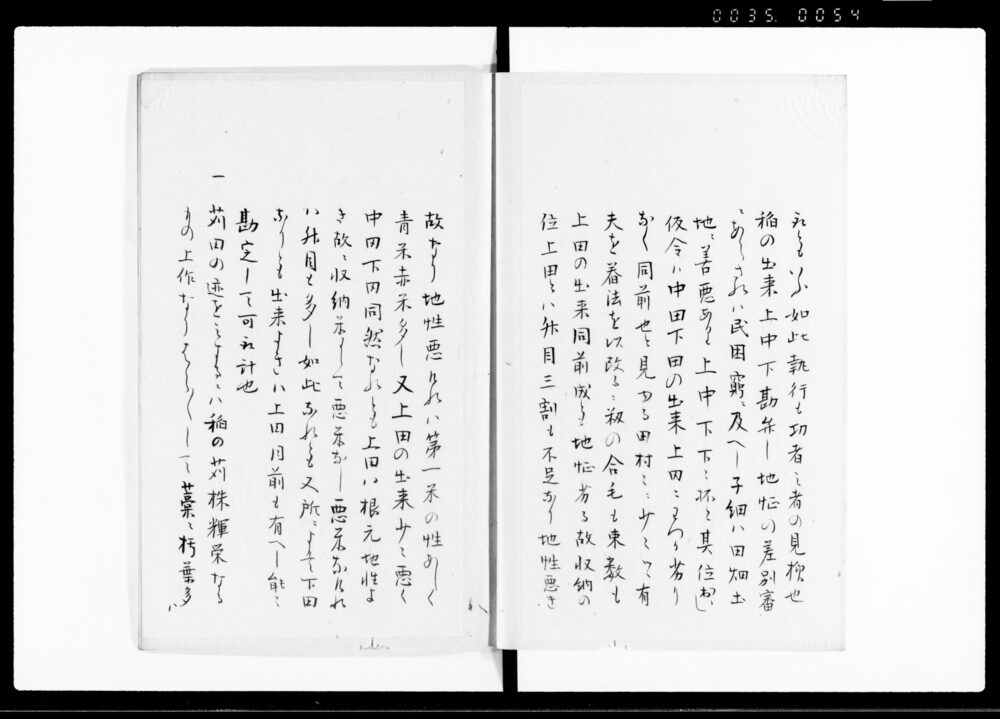 0035.0054
れともいふ如此執行も功者之者の見様也
稲の出来上中下勘弁し地性の差別審
ニあらされハ民困窮ニ及へし子細ハ田畑土
地ニ善悪あり上中下下ニ坏と其位
仮令ハ中田下田の出来上田ニもつり劣り
なく同前也と見ゆる田村ニニ少々ハ有
夫を着法を以改るニ籾の合毛も束数も
上田の出来同前成とも地性劣る故収納の
位上田とハ舛目三割も不足あり地性悪き
故なり地性悪けれハ第一米の性あしく
青米赤米多し又上田の出来少々悪く
中田下田同然なれとも上田ハ根元地性よ
き故ニ収納米よくして悪米なし悪米なけれ
ハ舛目も多し如此なれとも又所ニよりて下田
なりとも出来よきハ上田同前も有へし能々
勘定して可取計也
一 苅田の迹を見るニハ稲の苅株輝栄なる
もの上作なりはらはらして藁ニ朽葉多